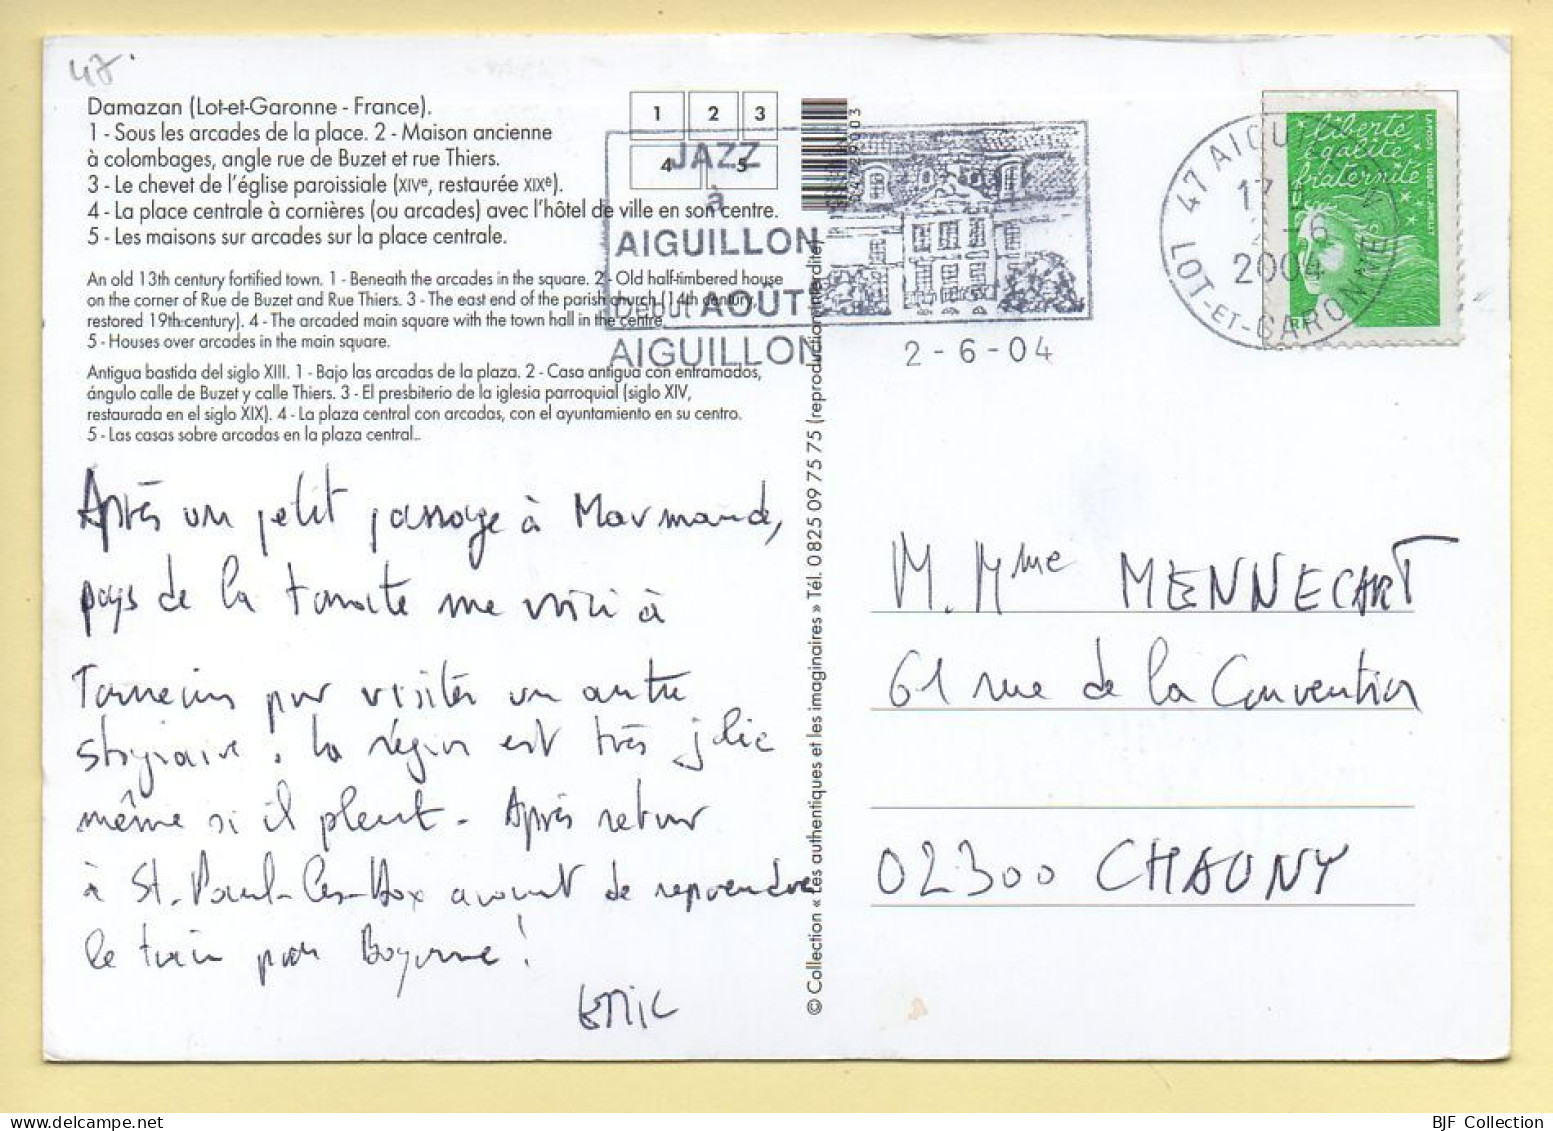 47.
Damazan (Lot-et-Garonne - France).
1 - Sous les arcades de la place. 2 - Maison ancienne
à colombages, angle rue de Buzet et rue Thiers.
3 - Le chevet de l'église paroissiale (XIVe, restaurée XIXe).
4 - La place centrale à cornières (ou arcades) avec l'hôtel de ville en son centre.
5 - Les maisons sur arcades sur la place centrale.
An old 13th century fortified town. 1 - Beneath the arcades in the square. 2 - Old half-timbered house
on the corner of Rue de Buzet and Rue Thiers. 3 - The east end of the parish church (14th century,
restored 19th century). 4 - The arcaded main square with the town hall in the centre.
5 - Houses over arcades in the main square.
Antigua bastida del siglo XIII. 1 - Bajo las arcadas de la plaza. 2 - Casa antigua con entramados,
ángulo calle de Buzet y calle Thiers. 3 - El presbiterio de la iglesia parroquial (siglo XIV,
restaurada en el siglo XIX). 4 - La plaza central con arcadas, con el ayuntamiento en su centro.
5 - Las casas sobre arcadas en la plaza central..
1 2 3
4 5
JAZZ
à
AIGUILLON
Début AOÛT
AIGUILLON
2 - 6 - 04
47 AIGUILLON
17 H
2 - 6
2004
LOT-ET-GARONNE
liberté
égalité
fraternité
RF
LA POSTE
© Collection « Les authentiques et les imaginaires » Tél. 0 825 09 75 75 (reproduction interdite)
Après un petit passage à Marmande,
pays de la tomate me voici à
Tonneins pour visiter un autre
stagiaire. La région est très jolie
même si il pleut - Après retour
à St. Paul-les-Dax avant de reprendre
le train par Bayonne !
M. Mme MENNECART
61 rue de la Convention
02300 CHAUNY
BJF Collection